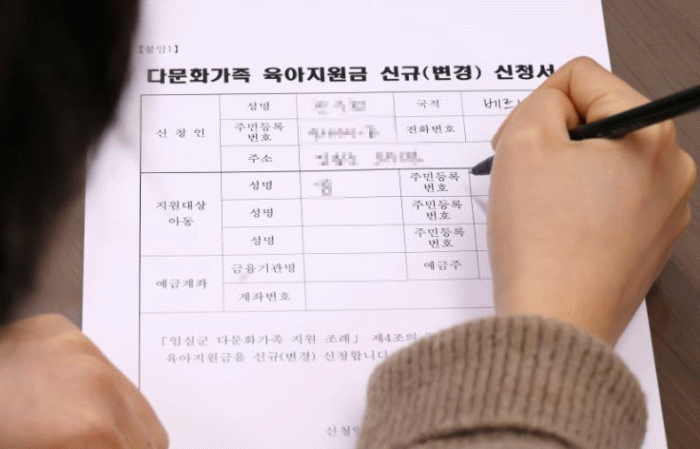 【붙임1】
다문화가족 육아지원금 신규(변경) 신청서
신 청 인 성명 국적
주민등록번호 전화번호
주소
지원대상 아동 성명 주민등록번호
성명 주민등록번호
성명 주민등록번호
예금계좌 금융기관명 예금주
계좌번호
「임실군 다문화가족 지원 조례」 제4조의
육아지원금을 신규(변경) 신청합니다